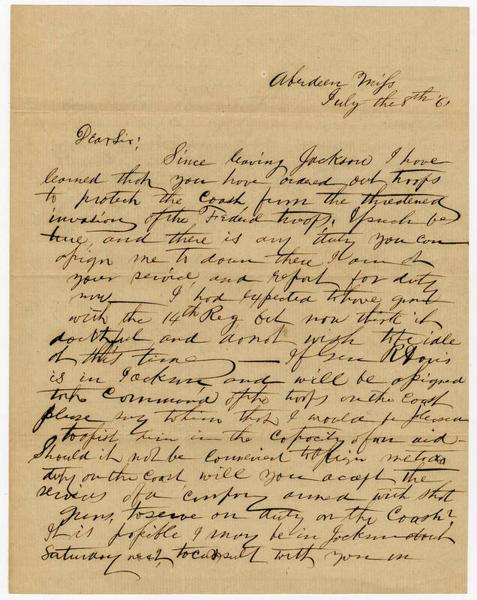 Aberdeen Miss
July the 8th 61
Dear Sir;
Since leaving Jackson I have
learned that you have ordered out troops
to protect the Coast from the threatened
invasion of the Federal troops. If such be
true, and there is any duty you can
assign me to down there I am at
your service, and report for duty
now. I had expected to have gone
with the 14th Reg but now think it
doubtful and do not wish to be idle
at this time — If Gen R Davis
is in Jackson and will be assigned
to the Command of the troops on the Coast
please say to him that I would be pleased
to assist him in the Capacity of an aid —
Should it not be convenient to assign me to
duty on the Coast will you accept the
services of a company armed with shot
guns, to serve on duty on the Coast?
It is possible I may be in Jackson about
Saturday next, to consult with you in